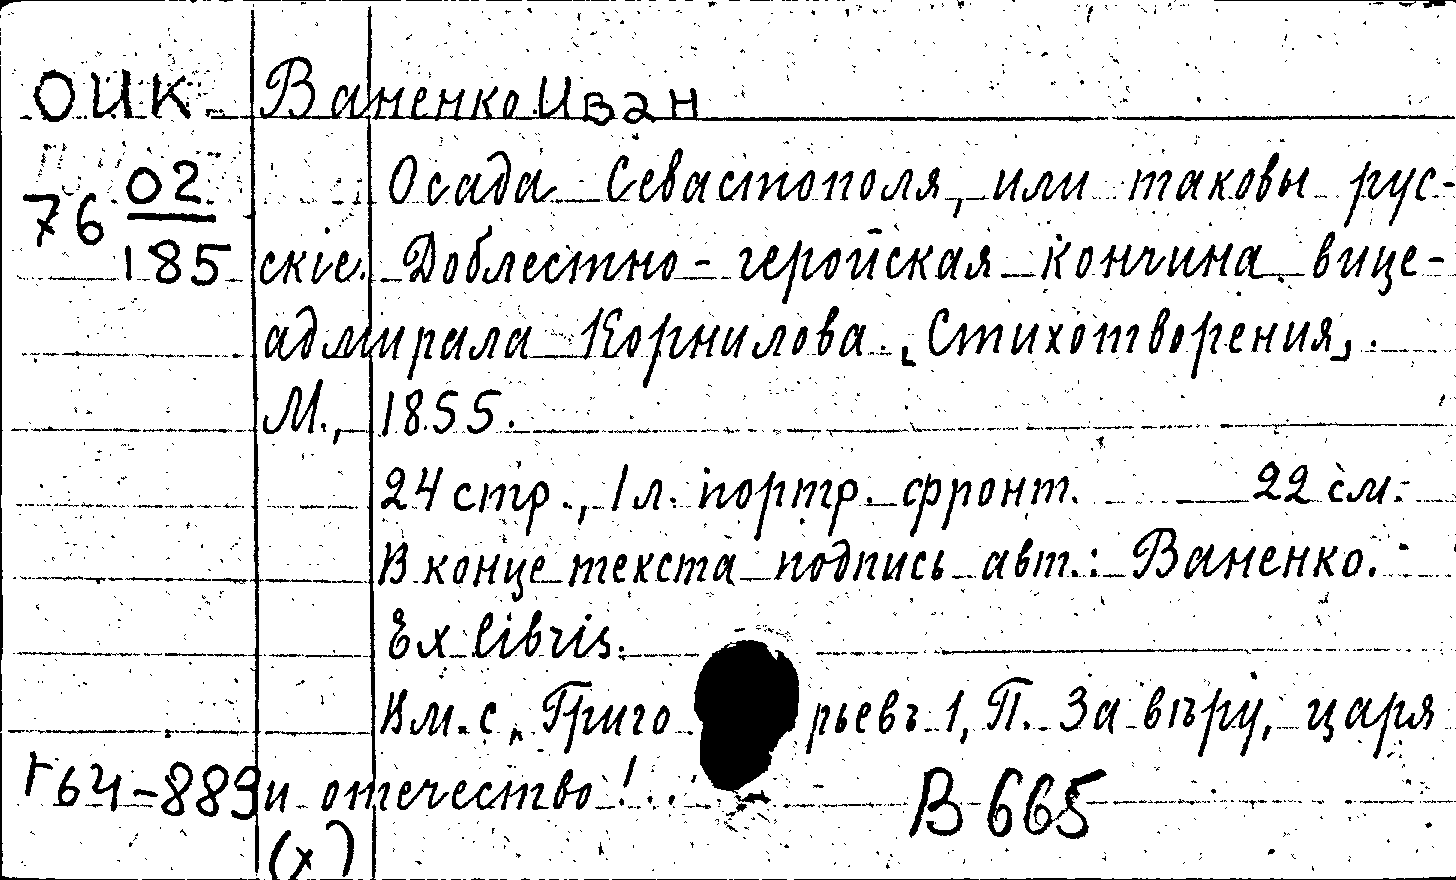 ОИК Ваненко Иван
Осада Севастополя, или таковы рус-
76 02/185
скіе. Доблестно-геройская кончина вице-
адмирала Корнилова. [Стихотворения].
М., 1855.
24 стр., 1 л. портр. фронт. 22 см.
В конце текста подпись авт.: Ваненко.
Ex libris.
Км. с [Григорьевъ], П. За вѣру, царя
г64-889 и отечество!..
В 665
(х)